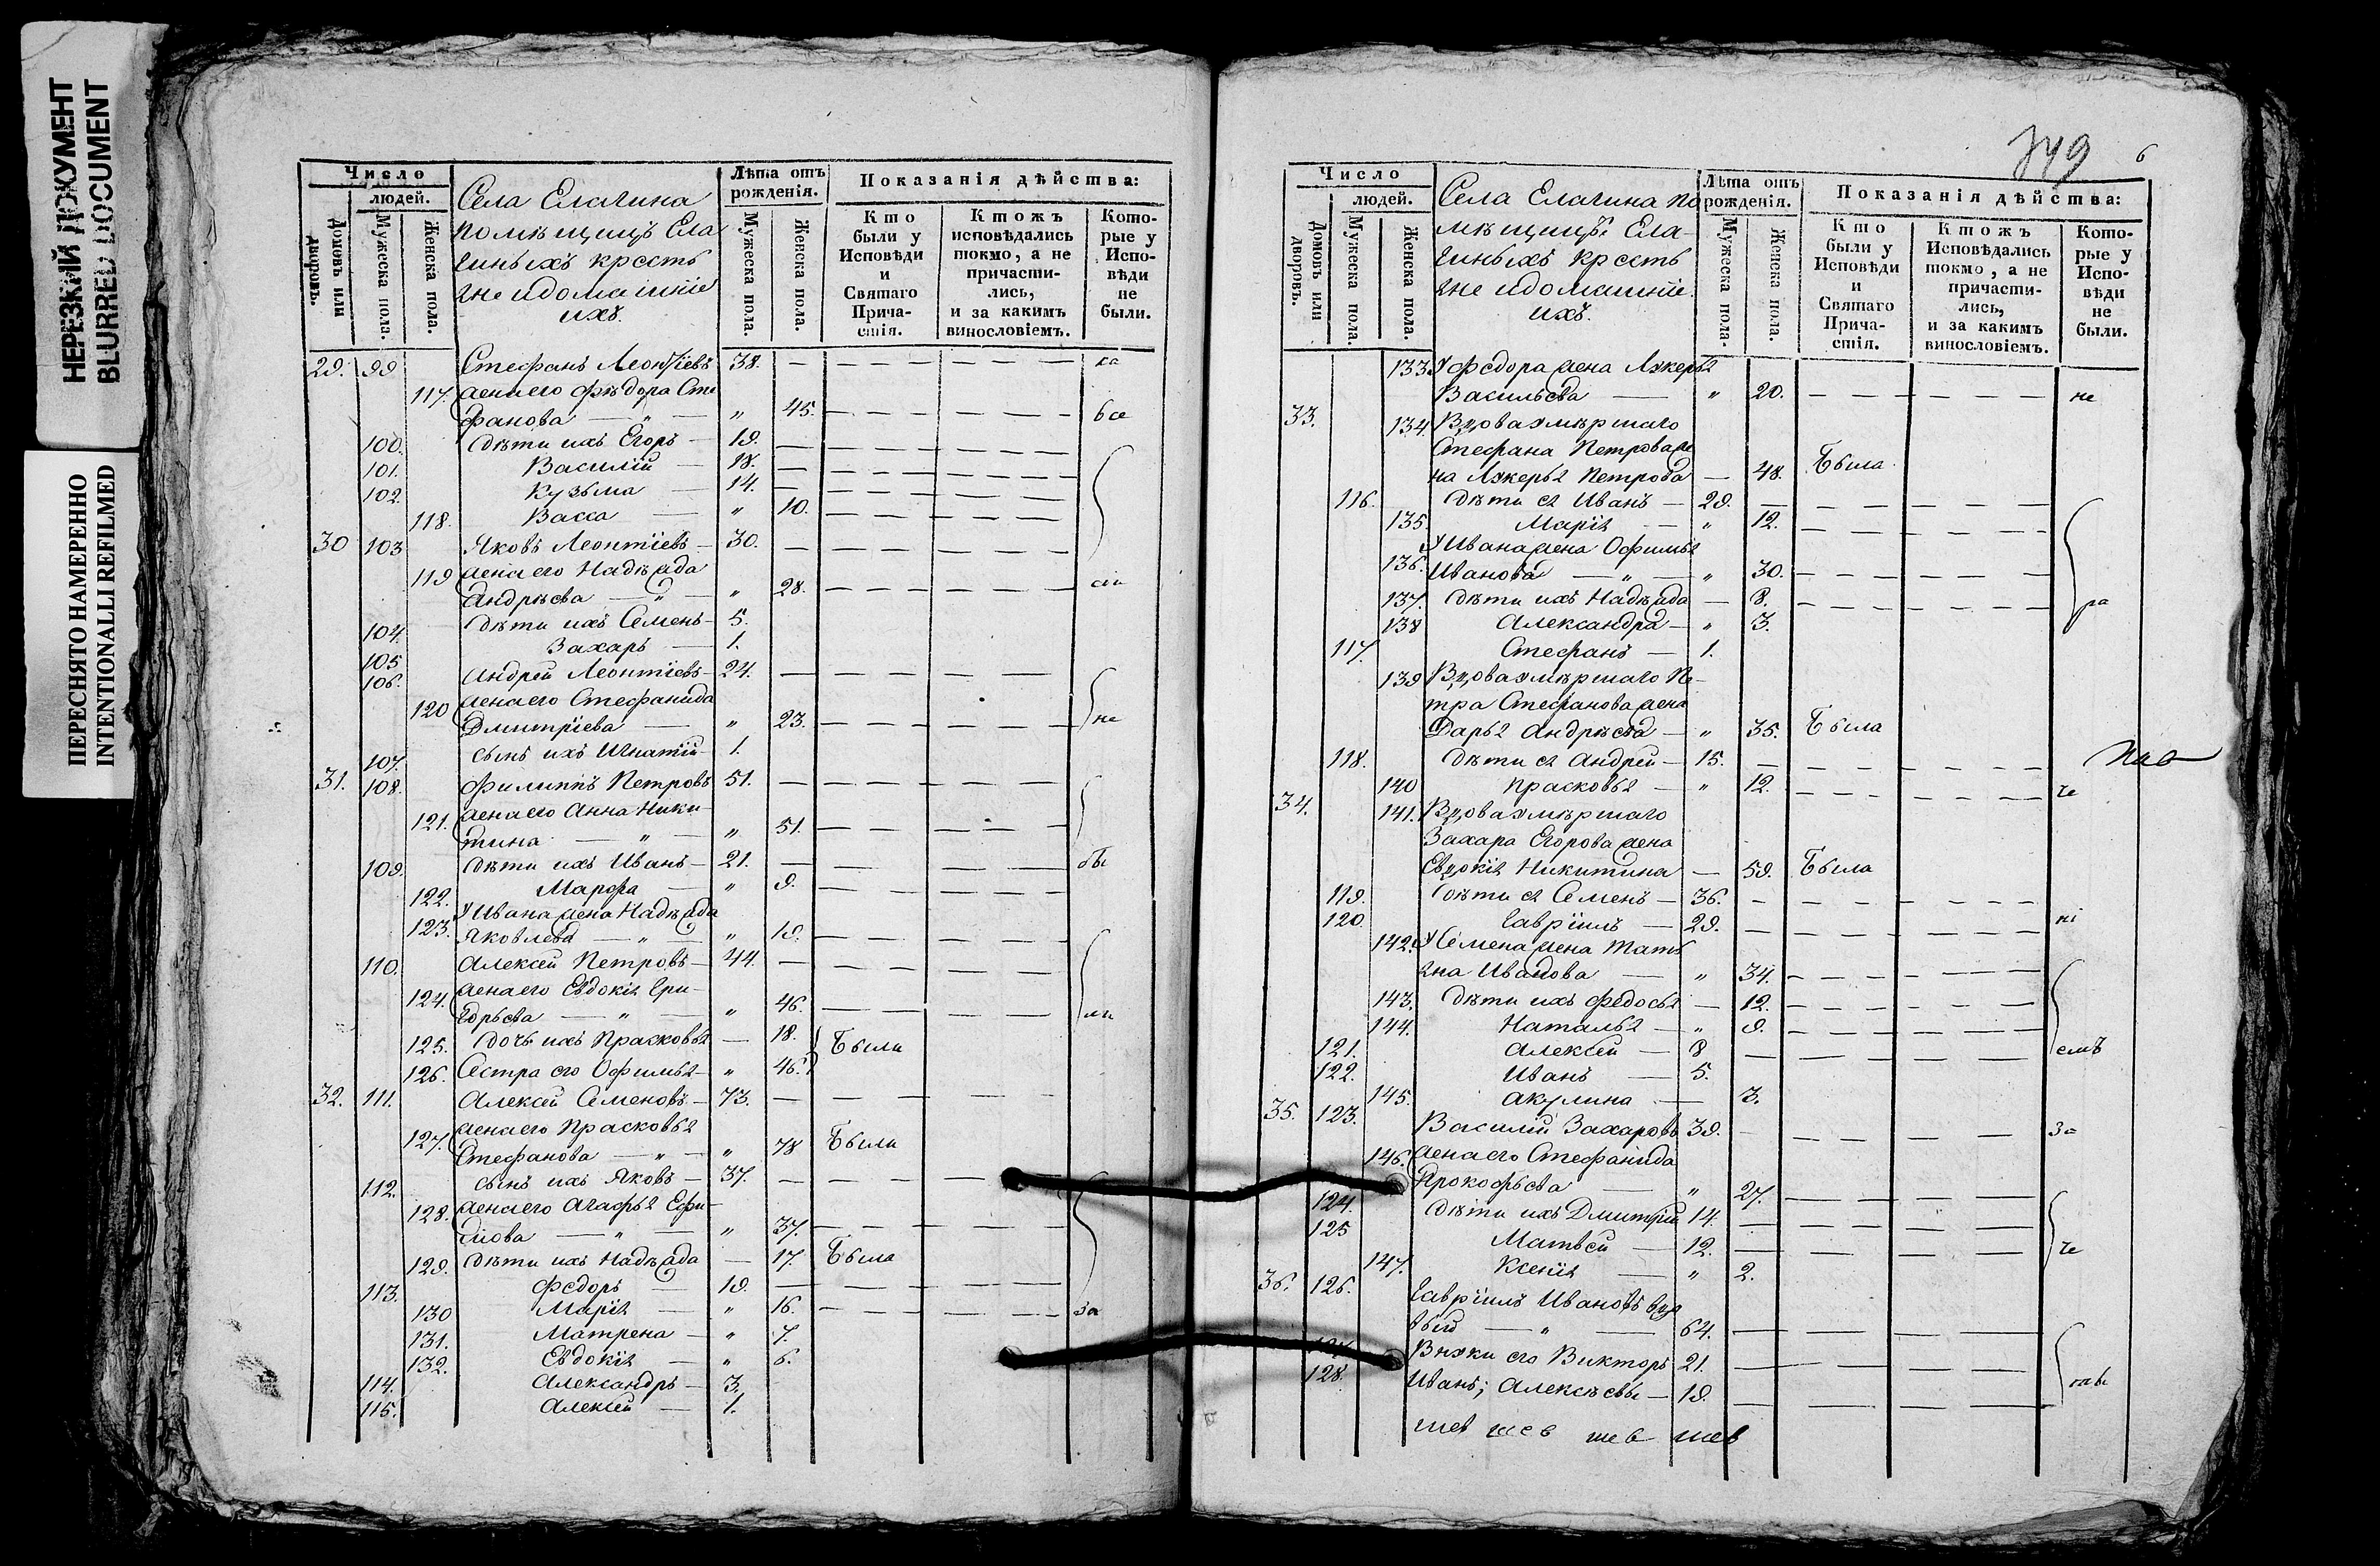 НЕРЕЗКИЙ ДОКУМЕНТ
BLURRED DOCUMENT
ПЕРЕСНЯТО НАМЕРЕННО
INTENTIONALLI REFILMED
Число
людей.
Домовъ или дворовъ.
Мужеска пола.
Женска пола.
Села Елагина
помѣщицъ Ела
гиныхъ кресть
яне идомашніе
ихъ.
Лѣта отъ рожденія.
Мужеска пола.
Женска пола.
Показанія дѣйства:
Кто были у Исповѣди и Святаго Причастія.
Ктожъ исповѣдались токмо, а не причастились, и за какимъ винословіемъ.
Которые у Исповѣди не были.
29. 99 Стефанъ Леонтіевъ 38. — — — —
117. жена его Ѳедора Сте
фанова — „ — „ 45. — — — — все
100. дѣти ихъ Егоръ — 19. — — — —
101. Василій — 18. — — — —
102. Кузьма — 14. — — — —
118. Васса — „ 10. — — — —
30 103 Яковъ Леонтіевъ — 30. — — — —
119 жена его Надѣжда
Андрѣева — „ — „ 28. — — — — сіи
104. дѣти ихъ Семенъ — 5.
105 Захаръ — 1.
106. Андрей Леонтіевъ — 24. — — — —
120 жена его Стефанида
Дмитріева — „ 23. — — — — не
107. сынъ ихъ Игнатій — 1.
31. 108. Филиппъ Петровъ 51. — — — —
121. жена его Анна Ники-
тина — „ — „ 51. — — — —
109. дѣти ихъ Иванъ — 21. — — — — бы
122. Марфа — „ 9. — — — —
123. У Ивана жена Надѣжда
Яковлева — „ — „ 19. — — — —
110. Алексѣй Петровъ — 44. — — — —
124. жена его Евдокія Гри-
горьева — „ — „ 46. — — — — ли
125. дочь ихъ Прасковья — 18. Были
126. Сестра его Офимья — „ 46.
32. 111. Алексѣй Семеновъ — 73. — — — —
127. жена его Прасковья
Стефанова — „ — „ 78 Были
112. сынъ ихъ Яковъ — 37. — — — —
128. жена его Агафья Ефи-
мова — „ — „ 37. — — — —
129. дѣти ихъ Надѣжда — 17. Была
113. Ѳедоръ — 19. — — — —
130 Марія — „ 16. — — — — за
131. Матрена — „ 7.
132. Евдокія — „ 6.
114. Александръ — 3.
115. Алексѣй — 1.
749 6
Число
людей.
Домовъ или дворовъ.
Мужеска пола.
Женска пола.
Села Елагина по
мѣщицъ Ела-
гиныхъ кресть
яне идомашніе
ихъ.
Лѣта отъ рожденія.
Мужеска пола.
Женска пола.
Показанія дѣйства:
Кто были у Исповѣди и Святаго Причастія.
Ктожъ Исповѣдались токмо, а не причастились, и за какимъ винословіемъ.
Которые у Исповѣди не были.
133. У Ѳедора жена Лукерья
Васильева — „ 20. — — — — не
33. 134. Вдова умѣршаго
Стефана Петрова же
на Лукерья Петрова — 48. Была
116. дѣти ея Иванъ — 29. — — — —
135. Марія — „ 12. — — — —
У Ивана жена Офимья
136. Иванова — „ — „ 30. — — — —
137. дѣти ихъ Надѣжда — 8. — — — — ра
138 Александра — „ 3.
117. Стефанъ — 1.
139 Вдова умѣршаго Пе-
тра Стефанова жена
Дарья Андрѣева — „ 35. Была
118. дѣти ея Андрей — 15. — — — —
140 Прасковья — „ 12. — — — — че
34. 141. Вдова умѣршаго
Захара Егорова жена
Евдокія Никитина — 59. Была
119. дѣти ея Семенъ — 36. — — — —
120 Гавріилъ — 29. — — — — ні
142. У Семена жена Тать
яна Иванова — „ 34. — — — —
143. дѣти ихъ Ѳедосья — 12. — — — —
144. Наталья — „ 9. — — — —
121. Алексѣй — 8 — — — — емъ
122. Иванъ — 5.
145. Акулина — 3.
35. 123. Василій Захаровъ 39. — — — — за
146. жена его Стефанида
Прокофьева — „ 27. — — — —
124. дѣти ихъ Дмитрій 14. — — — —
125 Матвѣй — 12. — — — — че
147. Ксенія — „ 2.
36. 126. Гавріилъ Ивановъ вдо
вый — „ — 64. — — — —
Внуки его Викторъ 21. — — — —
128. Иванъ; Алексѣевы — 19. — — — —